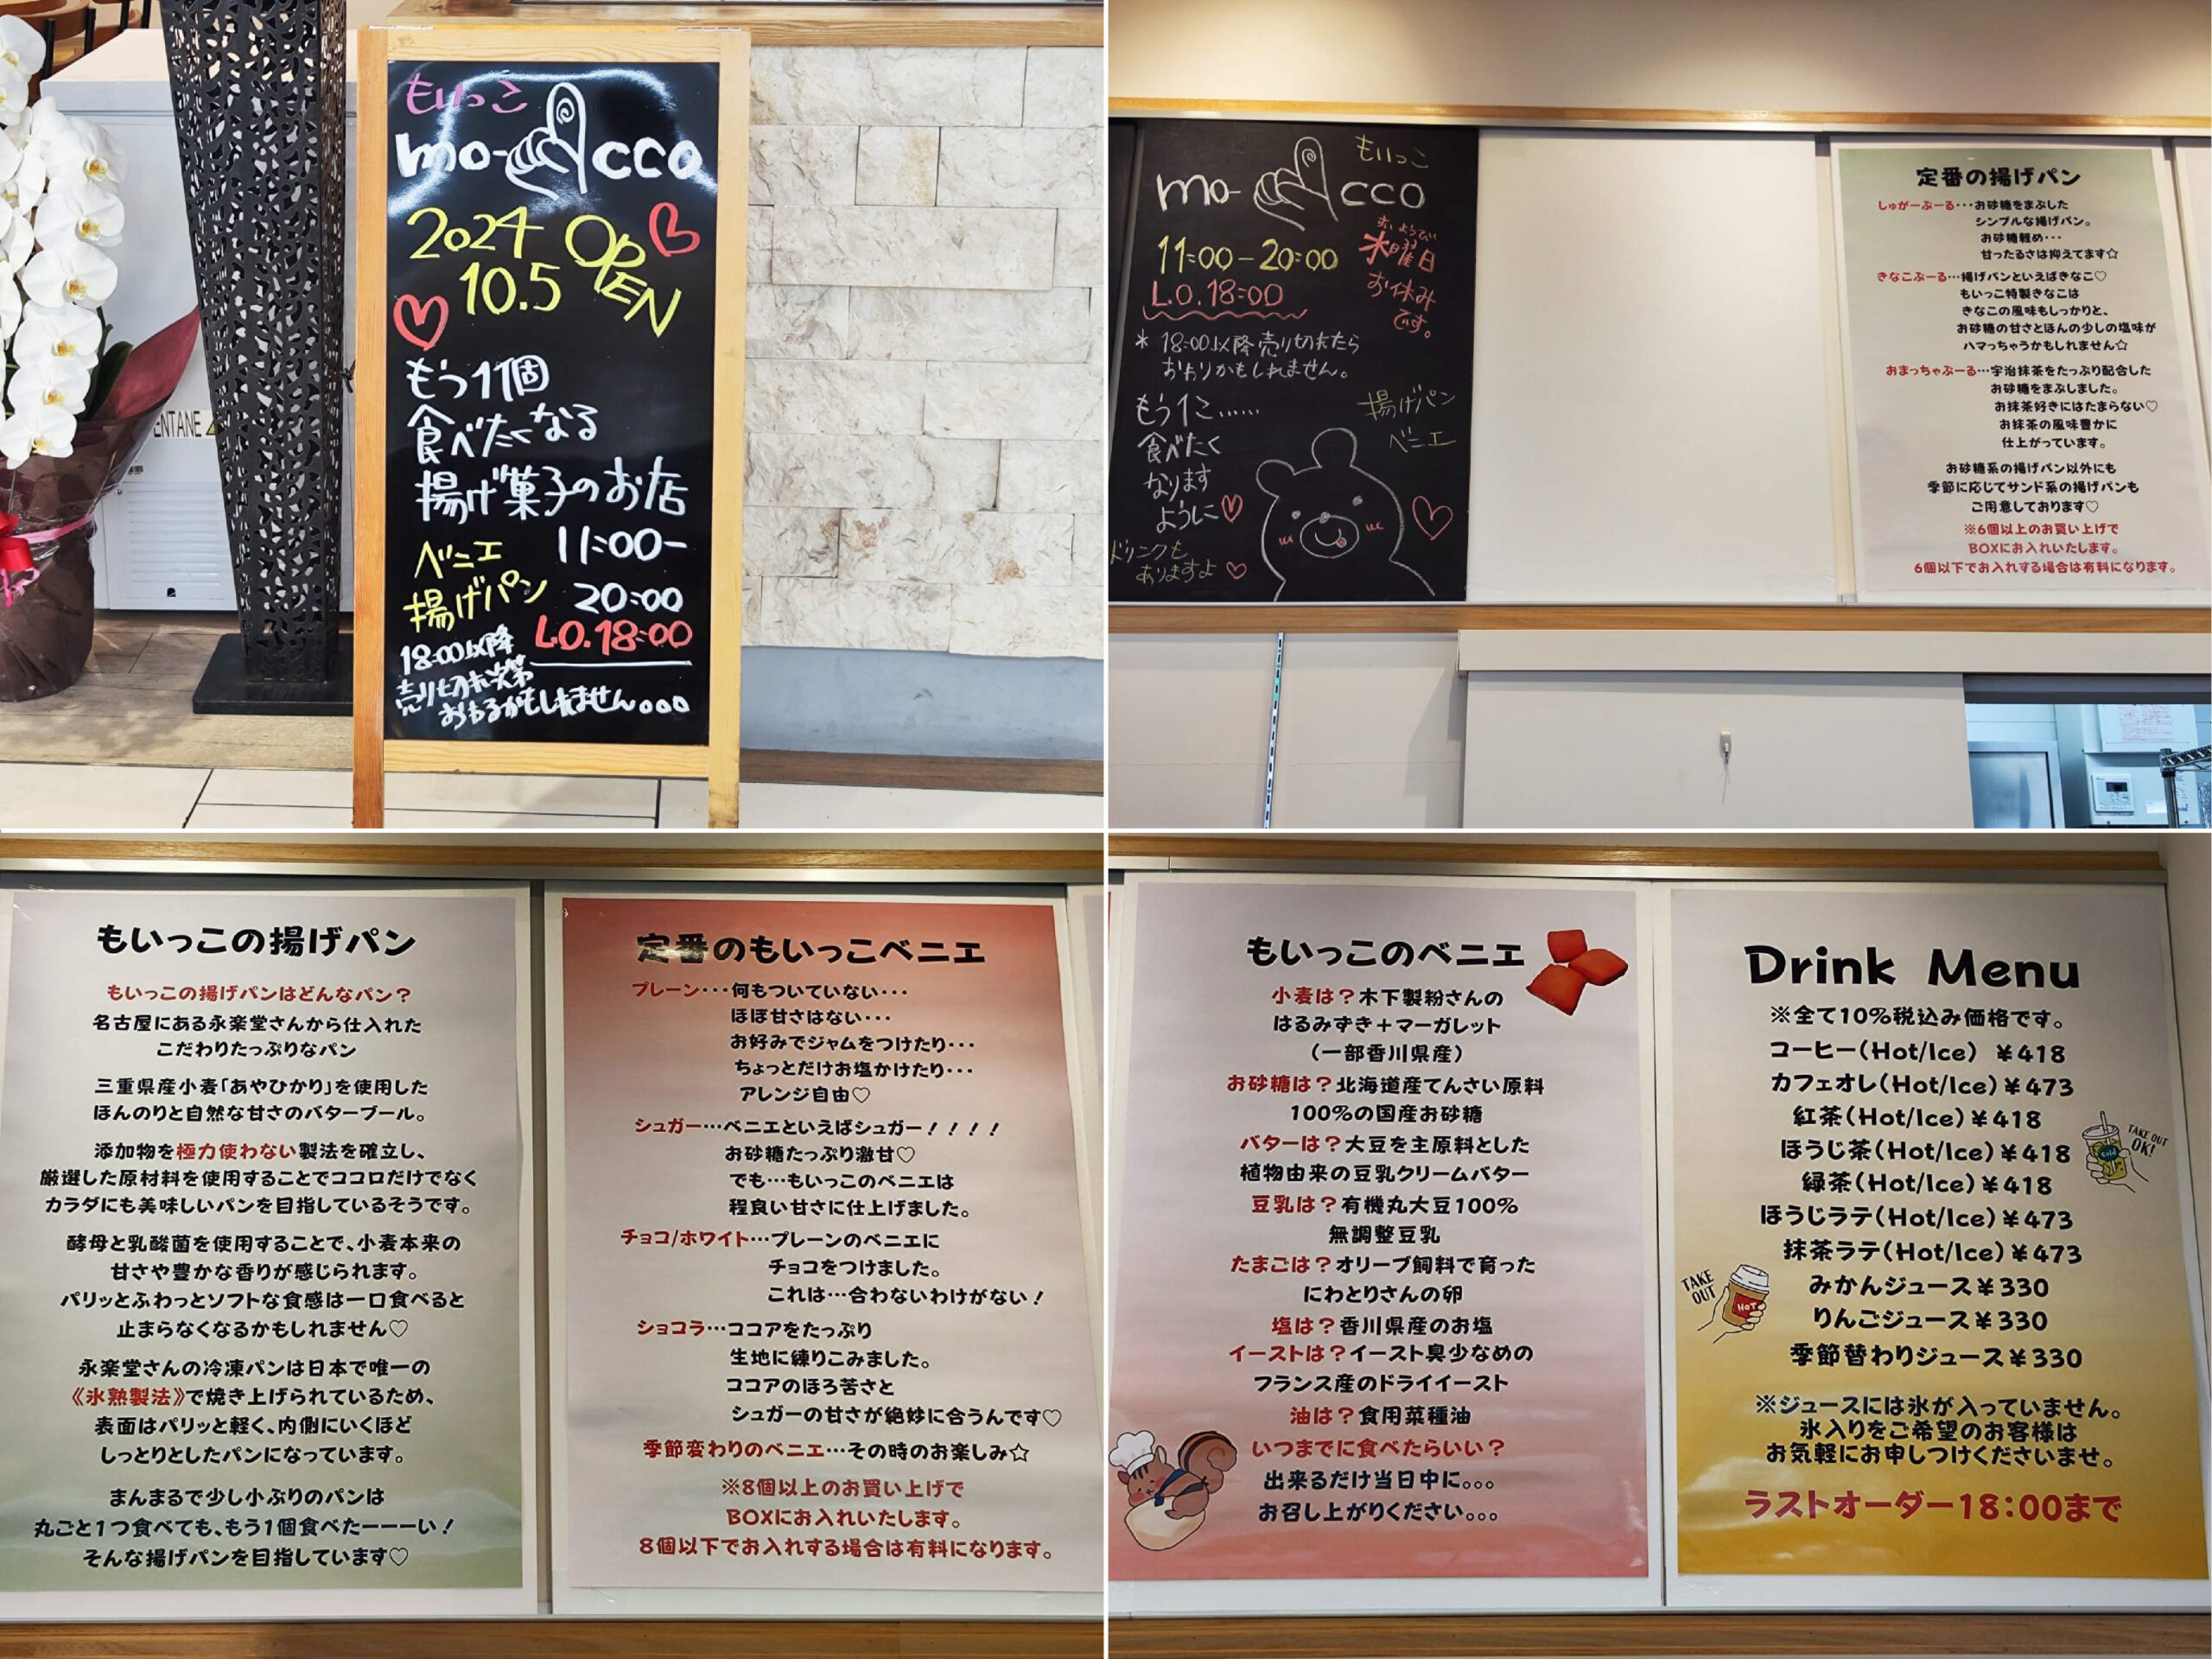 もいっこ
mo- cco
2024 OPEN
10.5
もう1個
食べたくなる
揚げ菓子のお店
ベニエ 11:00-
揚げパン 20:00
L.O.18:00
18:00以降
売り切れ次第
おわるかもしれません。。。
ENTANE
もいっこ
mo- cco
11:00-20:00
L.O.18:00
すいようび
水曜日
お休み
です。
* 18:00以降売り切れたら
おわりかもしれません。
もう1こ……
食べたく
なります
ように
揚げパン
ベニエ
ドリンクも
ありますよ
定番の揚げパン
しゅがーぶーる・・・お砂糖をまぶした
シンプルな揚げパン。
お砂糖軽め・・・
甘ったるさは抑えてます☆
きなこぶーる…揚げパンといえばきなこ♡
もいっこ特製きなこは
きなこの風味もしっかりと、
お砂糖の甘さとほんの少しの塩味が
ハマっちゃうかもしれません☆
おまっちゃぶーる…宇治抹茶をたっぷり配合した
お砂糖をまぶしました。
お抹茶好きにはたまらない♡
お抹茶の風味豊かに
仕上がっています。
お砂糖系の揚げパン以外にも
季節に応じてサンド系の揚げパンも
ご用意しております♡
※6個以上のお買い上げで
BOXにお入れいたします。
6個以下でお入れする場合は有料になります。
もいっこの揚げパン
もいっこの揚げパンはどんなパン？
名古屋にある永楽堂さんから仕入れた
こだわりたっぷりなパン
三重県産小麦「あやひかり」を使用した
ほんのりと自然な甘さのバターブール。
添加物を極力使わない製法を確立し、
厳選した原材料を使用することでココロだけでなく
カラダにも美味しいパンを目指しているそうです。
酵母と乳酸菌を使用することで、小麦本来の
甘さや豊かな香りが感じられます。
パリッとふわっとソフトな食感は一口食べると
止まらなくなるかもしれません♡
永楽堂さんの冷凍パンは日本で唯一の
《氷熟製法》で焼き上げられているため、
表面はパリッと軽く、内側にいくほど
しっとりとしたパンになっています。
まんまるで少し小ぶりのパンは
丸ごと1つ食べても、もう1個食べたーーーい！
そんな揚げパンを目指しています♡
定番のもいっこベニエ
プレーン・・・何もついていない・・・
ほぼ甘さはない・・・
お好みでジャムをつけたり・・・
ちょっとだけお塩かけたり・・・
アレンジ自由♡
シュガー…ベニエといえばシュガー！！！！
お砂糖たっぷり激甘♡
でも…もいっこのベニエは
程良い甘さに仕上げました。
チョコ/ホワイト…プレーンのベニエに
チョコをつけました。
これは…合わないわけがない！
ショコラ…ココアをたっぷり
生地に練りこみました。
ココアのほろ苦さと
シュガーの甘さが絶妙に合うんです♡
季節変わりのベニエ…その時のお楽しみ☆
※8個以上のお買い上げで
BOXにお入れいたします。
8個以下でお入れする場合は有料になります。
もいっこのベニエ
小麦は？木下製粉さんの
はるみずき＋マーガレット
（一部香川県産）
お砂糖は？北海道産てんさい原料
100％の国産お砂糖
バターは？大豆を主原料とした
植物由来の豆乳クリームバター
豆乳は？有機丸大豆100％
無調整豆乳
たまごは？オリーブ飼料で育った
にわとりさんの卵
塩は？香川県産のお塩
イーストは？イースト臭少なめの
フランス産のドライイースト
油は？食用菜種油
いつまでに食べたらいい？
出来るだけ当日中に。。。
お召し上がりください。。。
Drink Menu
※全て10％税込み価格です。
コーヒー（Hot/Ice） ¥418
カフェオレ（Hot/Ice）¥473
紅茶（Hot/Ice）¥418
ほうじ茶（Hot/Ice）¥418
緑茶（Hot/Ice）¥418
ほうじラテ（Hot/Ice）¥473
抹茶ラテ（Hot/Ice）¥473
みかんジュース¥330
りんごジュース¥330
季節替わりジュース¥330
TAKE OUT
OK!
Cold
TAKE
OUT
HOT
※ジュースには氷が入っていません。
氷入りをご希望のお客様は
お気軽にお申しつけくださいませ。
ラストオーダー18:00まで